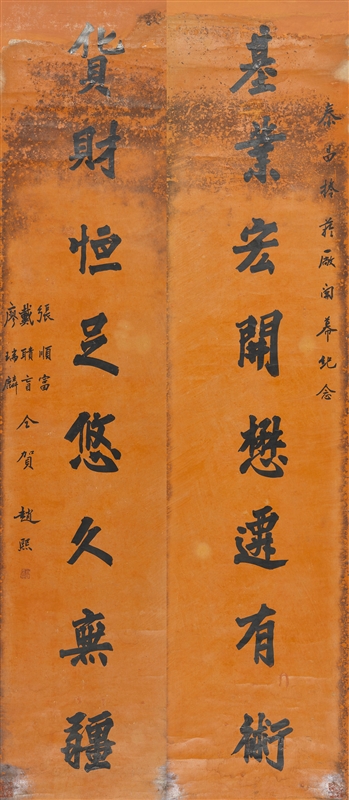 泰昌捲菸廠開幕紀念
基業宏開懋遷有術
貨財恒足悠久無疆
張順富
戴
廖瑞麟
仝賀 趙熙